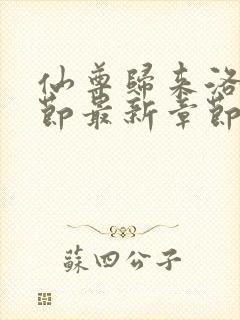 仙尊歸來洛
節最新章節
蘇四公子